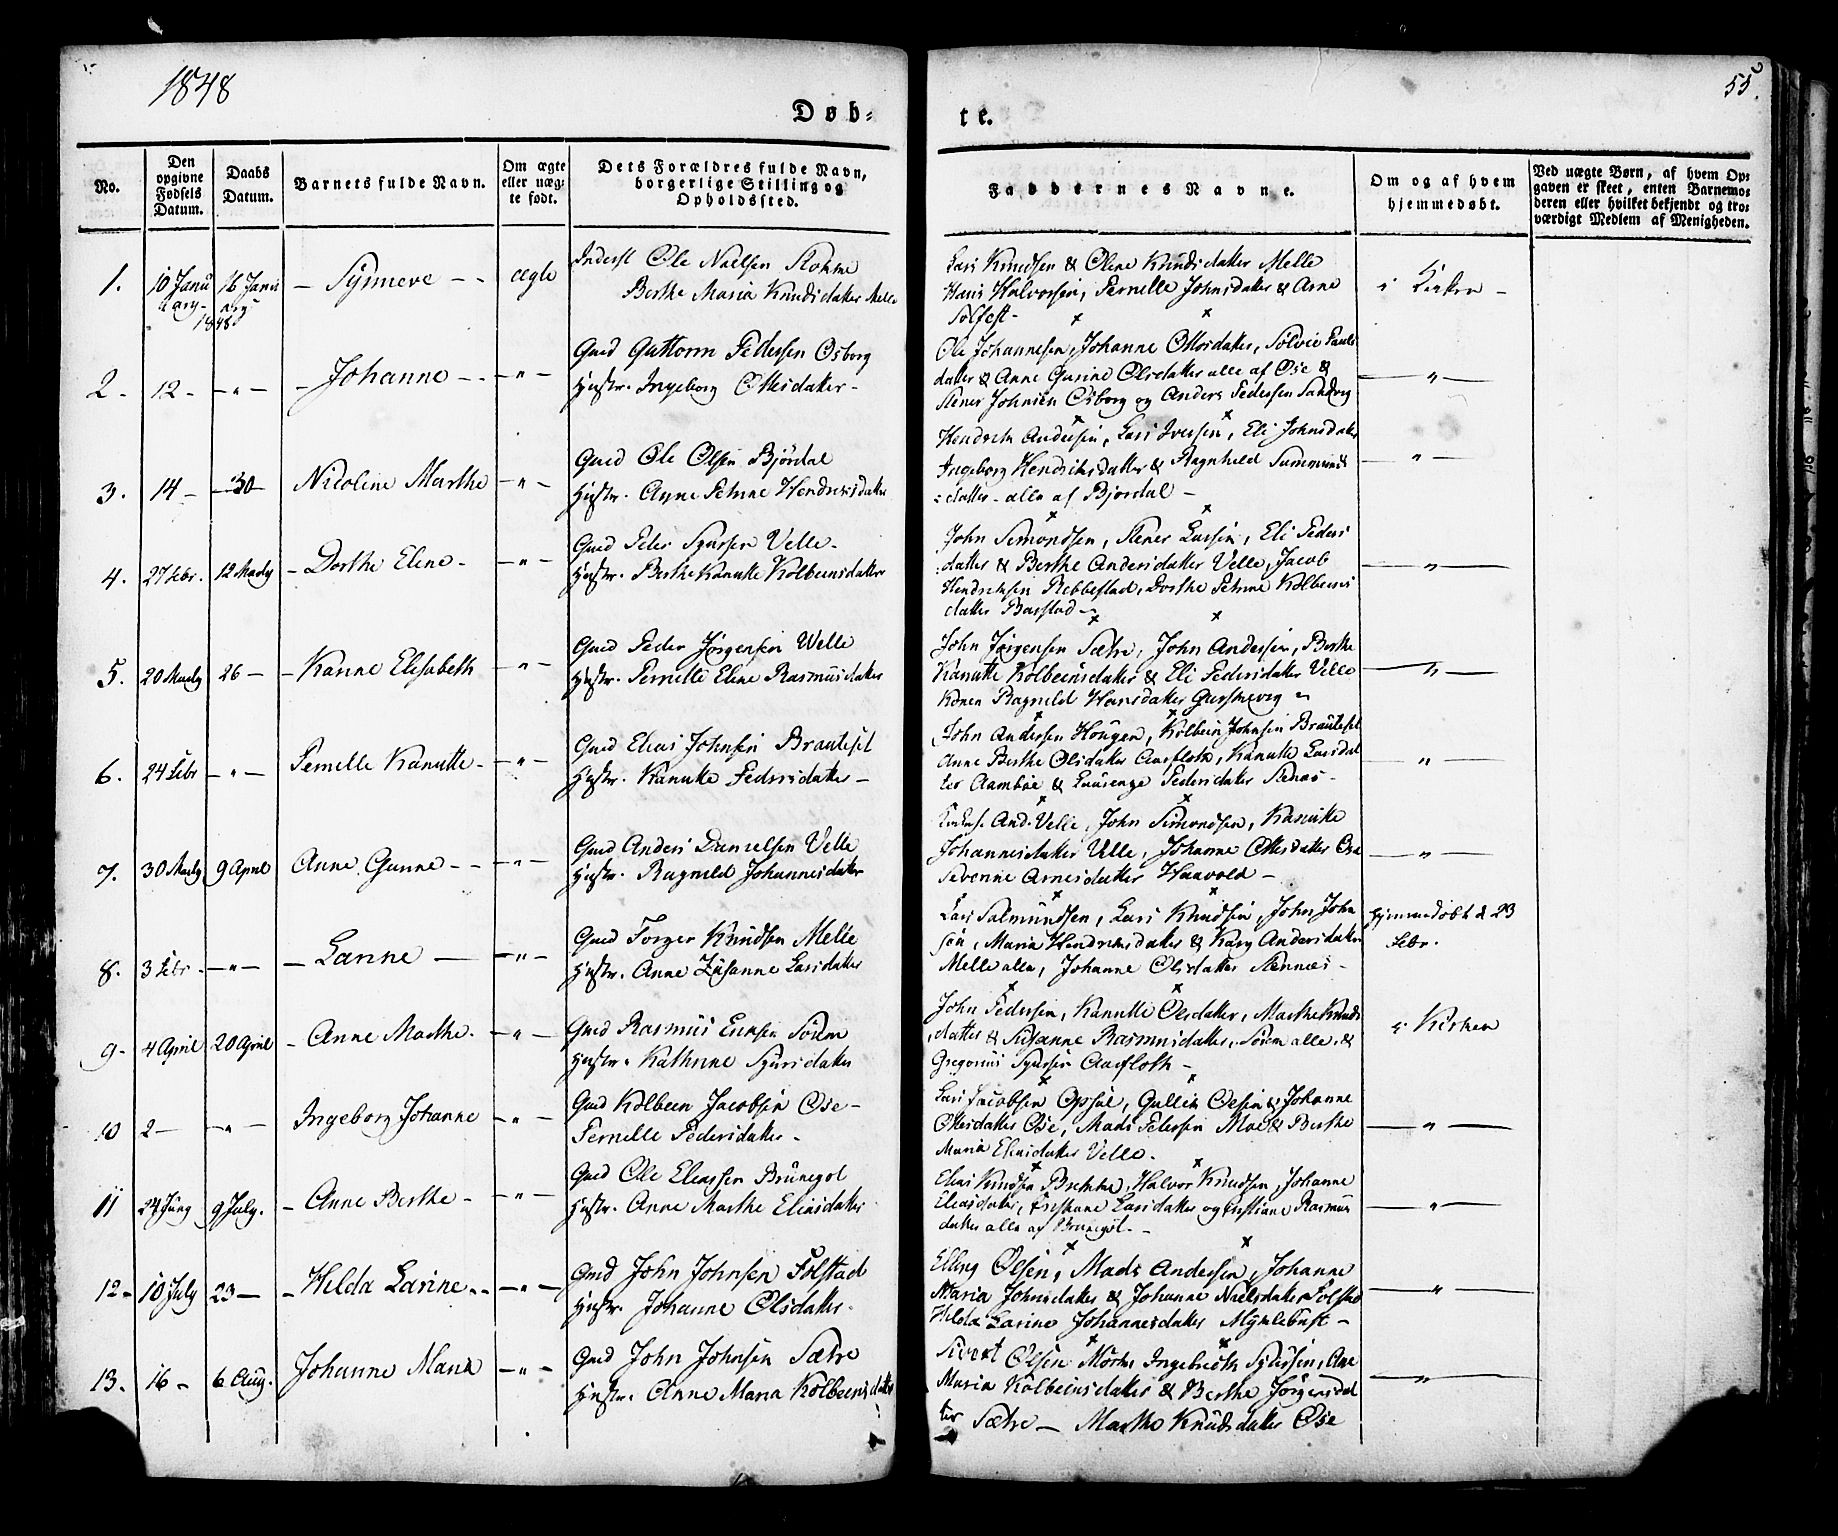 1848
55.
Døb=
te.
No.
Den opgivne Fødsels Datum.
Daabs Datum.
Barnets fulde Navn.
Om ægte eller uæg: te født.
Dets Forældres fulde Navn, borgerlige Stilling og Opholdssted.
Faddernes Navne.
Om og af hvem hjemmedøbt.
Ved uægte Børn, af hvem Op: gaven er skeet, enten Barnemo: deren eller hvilket bekjendt og tro: værdigt Medlem af Menigheden.
1. 10 Janu 16 Janu - Synneve - - ægte
1848
Inderst Ole Nielsen
Berthe Maria Knudsdatter Melle
Lars Knudsen & Olene Knudsdatter Melle
Hans Halvorsen, Pernelle Johnsdatter & Arne
Solfest -
i Kirken -
2. 12 - - " - - Johanne - - - " -
Gmd Guttorm Pedersen Osborg
Hustr. Ingeborg Ottesdatter -
Ole Johannesen, Johanne Ottesdatter, Solvie Pauls
datter & Anne Gurine Olsdatter alle af Øse &
Stener Johnsen Osborg og Anders Pedersen Sandvig
- " -
3. 14 - - 30 - Nicoline Marthe - " -
Gmd Ole Olsen Bjørdal
Hustr. Anne Petrine Hendriksdatter
Hendrik Andersen, Lars Iversen, Eli Johnsdatter
Ingeborg Hendriksdatter & Ragnhild
datter - alle af Bjørdal -
- " -
4. 27 Febr. 12 Marts - Dorthe Eline - - " -
Gmd Peter Sjursen Velle -
Hustr. Berthe Kanutte Kolbeinsdatter
John Simondsen, Stener Larsen, Eli Peders
datter & Berthe Andersdatter Velle, Jacob
Hendriksen Rebbestad, Dorthe Petrine Kolbeins
datter Barstad -
- " -
5. 20 Marts 26 - - Karine Elisabeth - " -
Gmd Peder Jørgensen Welle
Hustr. Pernelle Eline Rasmusdatter
John Jørgensen Sætre, John Andersen, Berthe
Kanutte Kolbeinsdatter & Eli Pedersdatter Velle
Konen Ragnild Hansdatter
- " -
6. 24 Febr - " - Pernelle Kanutte - - " -
Gmd Elias Johnsen Brauteset
Hustr. Kanutte Pedersdatter -
John Andersen Hougen, Kolbein Johnsen Brauteset
Anne Berthe Olsdatter Aarfloth, Kanutte Larsdat
ter Aambøe & Pedersdatter Stenæs -
- " -
7. 30 Marts 9 April Anne Gurine - - - " -
Gmd Anders Danielsen Velle
Hustr. Ragnild Johannesdatter
And. Velle, John Simondsen, Kanutte
Johannesdatter Velle, Johanne Ottesdatter Øse
Severine Arnesdatter Haavold -
- " -
8. 3 Febr - - " - - Larine - - " -
Gmd Torger Knudsen Melle
Hustr. Anne Zusanne Larsdatter
Lars Salmundsen, Lars Knudsen, John John
sen, Maria Hendriksdatter & Kary Andersdatter
Melle alle, Johanne Olsdatter Stennæs -
hjemmedøbt d 23
Febr.
9 - 4 April 20 April - Anne Marthe - - " -
Gmd Rasmus Sørem
Hustr. Kathrine Sjursdatter
John Pedersen, Kanutte Olsdatter, Marthe Knuds
datter & Susanne Rasmusdatter, Sørem alle, &
Gregorius Sjursen Aarfloth -
i Kirken
10 2 - - " - Ingeborg Johanne - " -
Gmd Kolbeen Jacobsen Øse -
Pernelle Pedersdatter -
Lars Jacobsen Opsal, Gullik Olsen & Johanne
Ottesdatter Øse, Mads Petersen Moe & Berthe
Maria Eliasdatter Velle -
- " -
11 24 Juny 9 July. - Anne Berthe - - " -
Gmd Ole Eliassen Brunegot
Hustr. Anne Marthe Eliasdatter
Elias Knudsen Brekke, Halvor Knudsen, Johanne
Eliasdatter, Larsdatter og Rasmus
datter alle af Brunegot -
- " -
12 - 10 July 23 - - Hilda Larine - - - " -
Gmd John Johnsen Folstad
Hustr. Johanne Olsdatter -
Elling Olsen, Mads Andersen, Johanne
Maria Johnsdatter & Johanne Nielsdatter Folstad
Hilda Larine Johannesdatter Myklebust -
- " -
13. 16 - 6 Aug. Johanne Maria - " -
Gmd John Johnsen Sætre
Hustr. Anne Maria Kolbeensdatter
Sivert Olsen Mork, Ingebrigt Sjursen, Ane
Maria Kolbeinsdatter & Berthe Jørgensdat
ter Sætre - Marthe Knudsdatter Øse
- " -